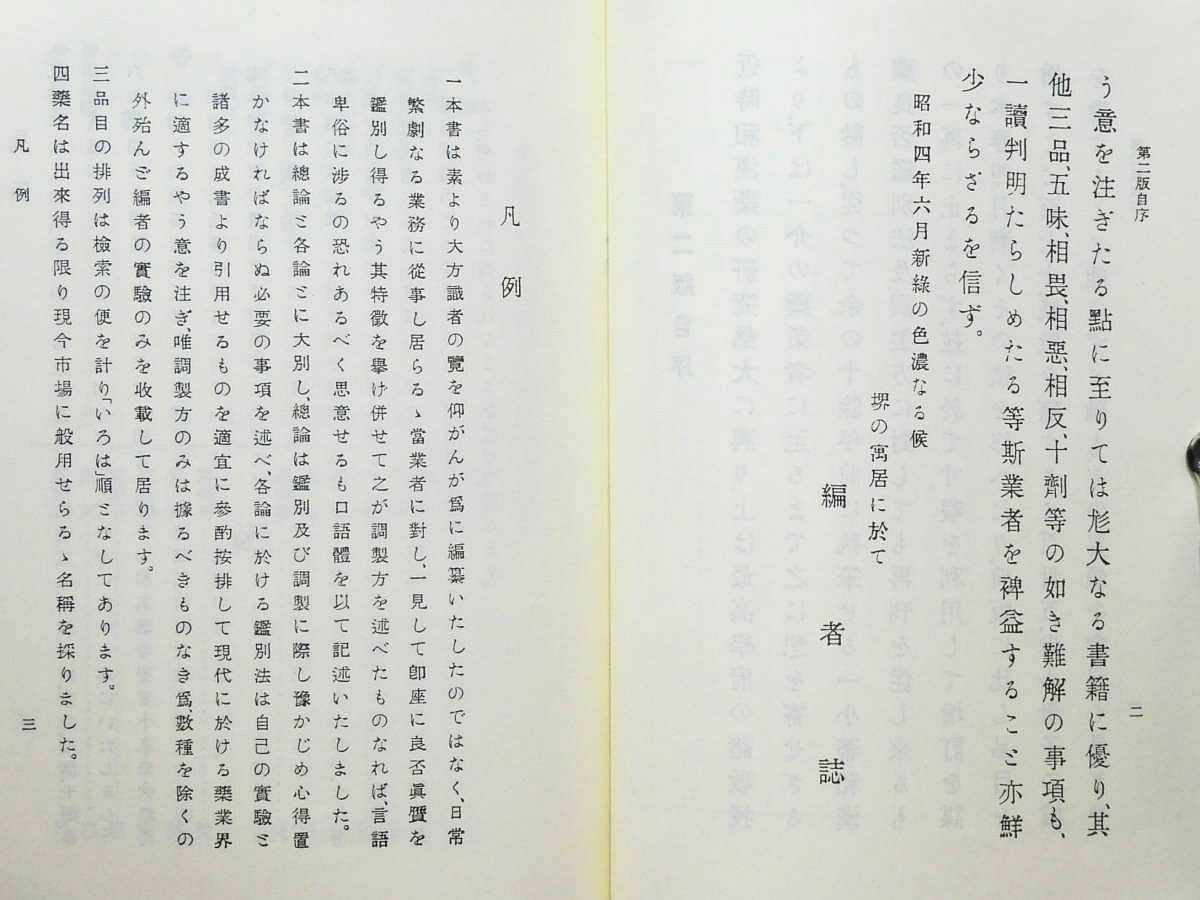 第二版自序
二
う意を注ぎたる點に至りては尨大なる書籍に優り、其
他三品、五味、相畏、相惡、相反、十劑等の如き難解の事項も、
一讀判明たらしめたる等斯業者を裨益すること亦鮮
少ならざるを信ず。
昭和四年六月新綠の色濃なる候
堺の寓居に於て
編者誌
凡例
一本書は素より大方識者の覽を仰がんが爲に編纂いたしたのではなく、日常
繁劇なる業務に從事し居らるゝ當業者に對し、一見して卽座に良否眞贋を
鑑別し得るやう其特徵を擧け併せて之が調製方を述べたものなれば、言語
卑俗に涉るの恐れあるべく思意せるも口語體を以て記述いたしました。
二本書は總論と各論とに大別し、總論は鑑別及び調製に際し豫かじめ心得置
かなければならぬ必要の事項を述べ、各論に於ける鑑別法は自己の實驗と
諸多の成書より引用せるものを適宜に參酌按排して現代に於ける藥業界
に適するやう意を注ぎ、唯調製方のみは據るべきものなき爲、數種を除くの
外殆んど編者の實驗のみを收載して居ります。
三品目の排列は檢索の便を計り「いろは」順となしてあります。
四藥名は出來得る限り現今市場に般用せらるゝ名稱を採りました。
凡例
三